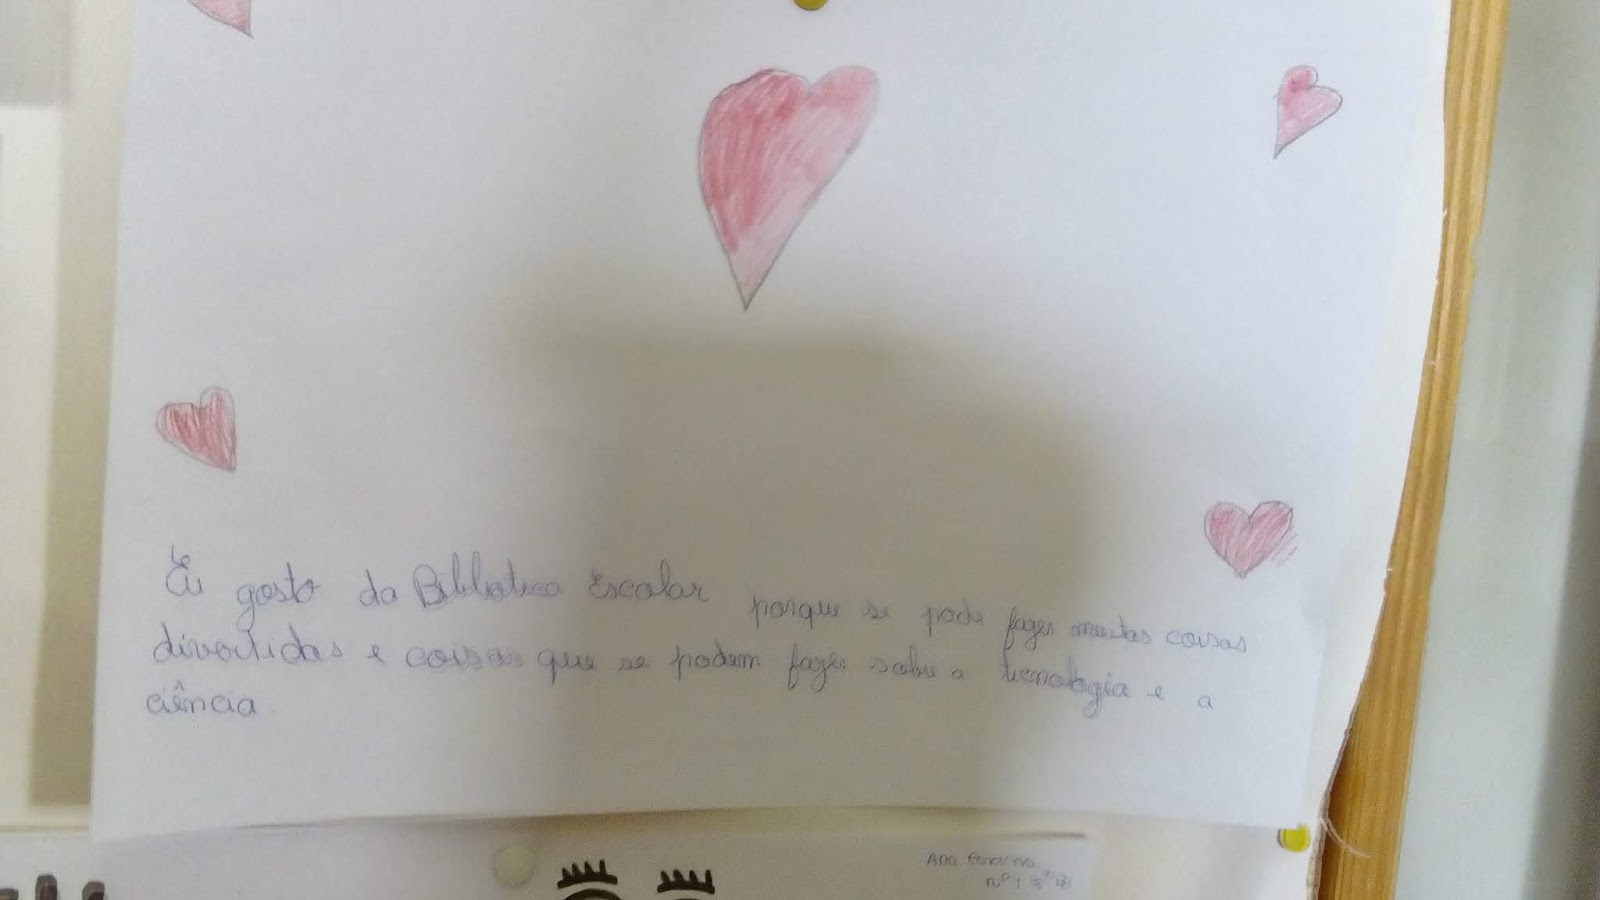 Eu gosto da Biblioteca Escolar porque se pode fazer muitas coisas
divertidas e coisas que se podem fazer sobre a tecnologia e a
ciência
Ana
Nº1